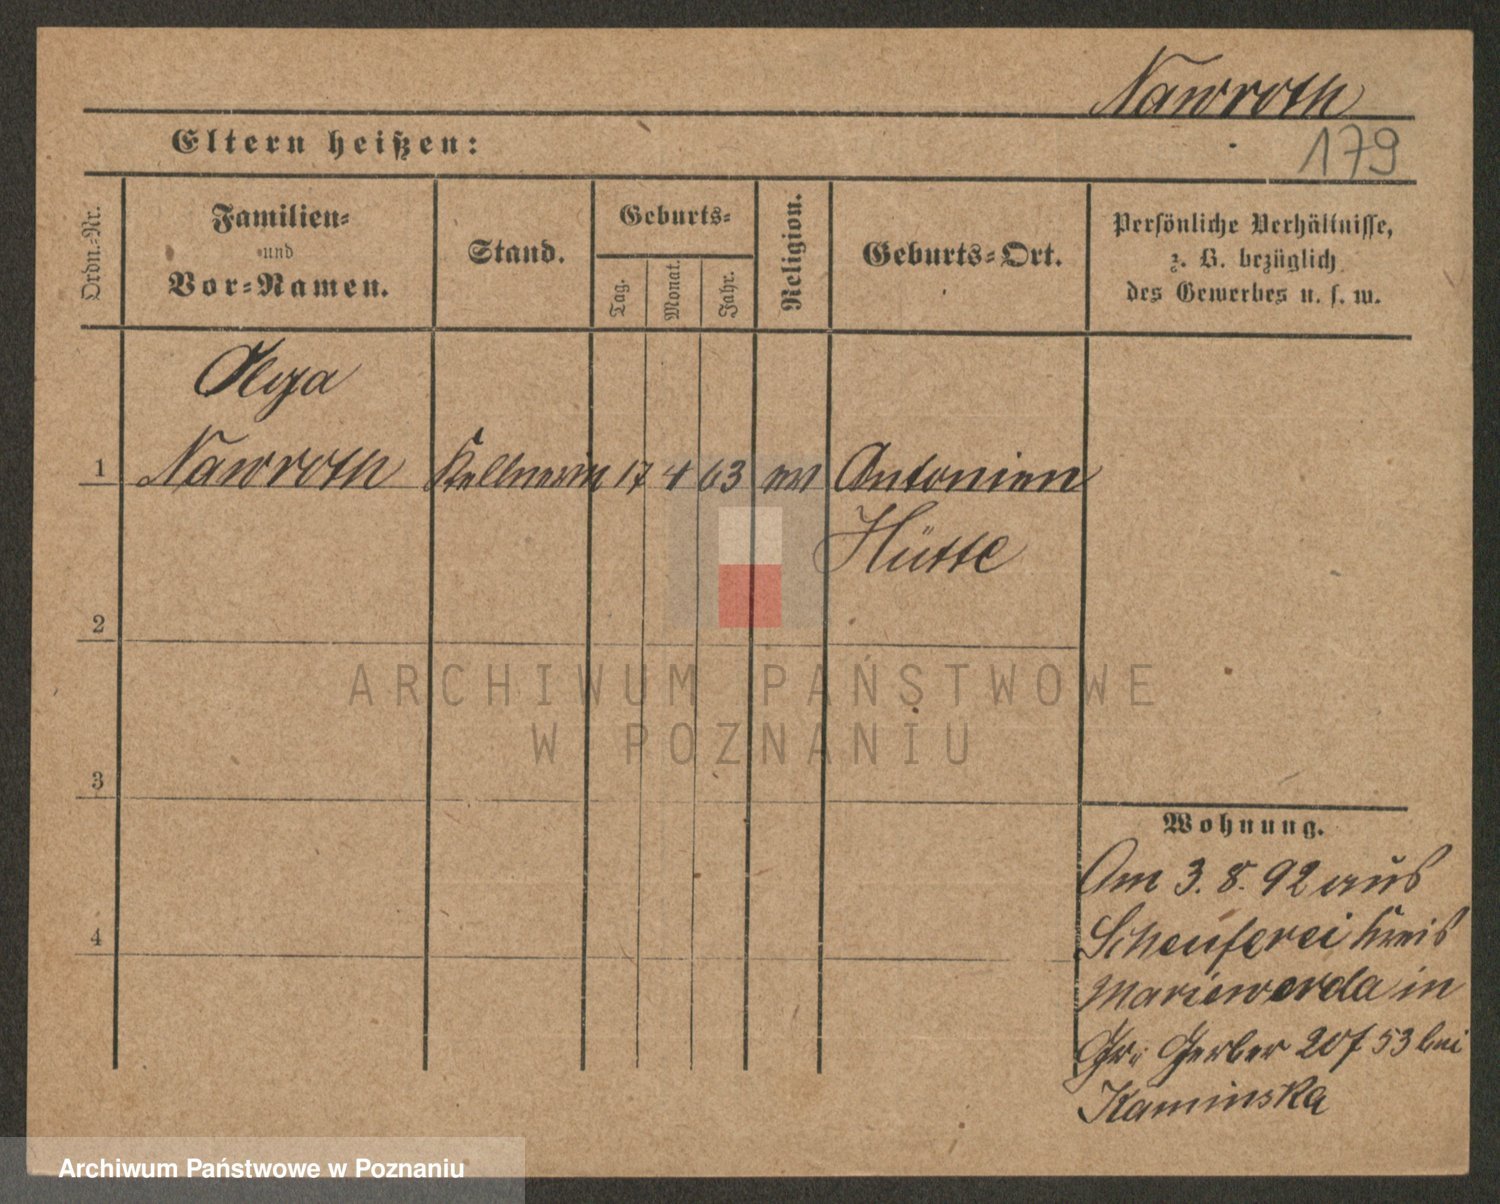 Nawroth
Eltern heißen:
179
Ordn.=Nr.
Familien=
und
Vor=Namen.
Stand.
Geburts=
Tag.
Monat.
Jahr.
Religion.
Geburts=Ort.
Persönliche Verhältnisse,
z. B. bezüglich
des Gewerbes u. s. w.
Olga
1 Nawroth Kellnerin 17 4 63 ev Antonien
Hütte
2
3
4
Wohnung.
Am 3. 8. 92 aus
Kreis
Marienwerda in
Gr. Gerber 20f 53 bei
Kaminska
ARCHIWUM PAŃSTWOWE
W POZNANIU
Archiwum Państwowe w Poznaniu